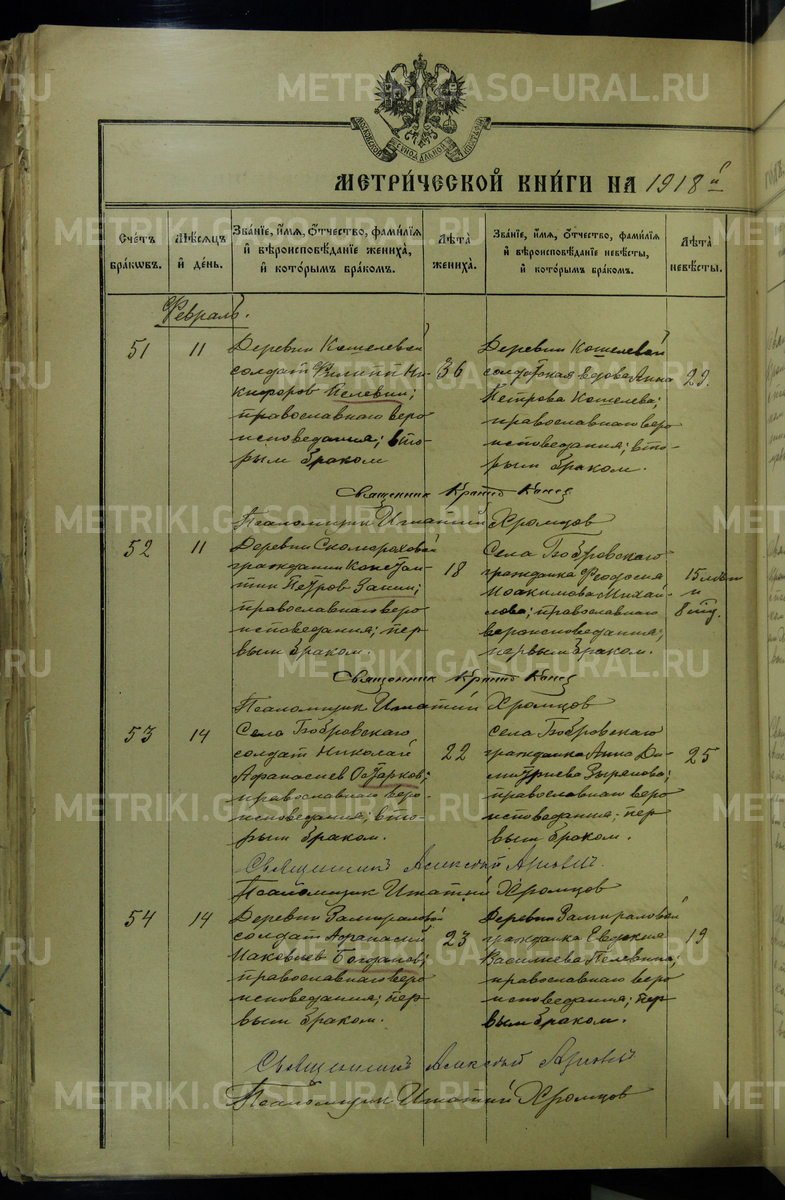 МОСКОВСКОЙ СѴНОДАЛЬНОЙ ТИПОГРАФІИ
МЕТРИ́ЧЕСКОЙ КНИ́ГИ НА 1918й
Счётъ бра́кѡвъ.
Мѣ́сяцъ и҆ де́нь.
Зва́нїе, и҆́мѧ, ѻ҆́тчество, фами́лїѧ и҆ вѣроисповѣ́данїе жениха̀, и҆ кото́рымъ бра́комъ.
Лѣ̑та жениха̀.
Зва́нїе, и҆́мѧ, ѻ҆́тчество, фами́лїѧ и҆ вѣроисповѣ́данїе невѣ́сты, и҆ кото́рымъ бра́комъ.
Лѣ̑та невѣ́сты.
Февраль.
51 11 Деревни Кошелевой
солдат Филипп Ни-
кифоров Пелевин;
православнаго веро
исповедания; вто-
рым браком
36
Деревни Кошелевой
солдатская вдова Анна
Петрова Кошелева;
православнаго веро
исповедания; вто-
рым браком.
29.
Священник
Псаломщик Игнатий Хромцов
52 11 Деревни Скомороховой
гражданин Констан
тин Петров Занин;
православнаго веро
исповедания; пер
вым браком.
18
Села Бобровскаго
гражданка Феодосия
Иоакимова Михай-
лова; православнаго
вероисповедания;
первым браком.
15 лет
и
8 мц.
Священник
Псаломщик Игнатий Хромцов
53 14 Села Бобровскаго
солдат Николай
Афанасиев Остарков;
православнаго веро-
исповедания; вто-
рым браком.
22
Села Бобровскаго
гражданка Анна Ди-
митриева Зырянова;
православнаго веро
исповедания; пер
вым браком.
25
Священникъ Алексий
Псаломщик Игнатий Хромцов
54 14 Деревни Замираловой
солдат Афанасий
Иаковлев Богданов;
православнаго веро
исповедания; пер
вым браком.
23
Деревни Замираловой
гражданка Евдокия
Василиева Пелевина;
православнаго веро
исповедания; пер
вым браком.
19
Священникъ Алексий
Псаломщик Игнатий Хромцов
METRIKI.GASO-URAL.RU